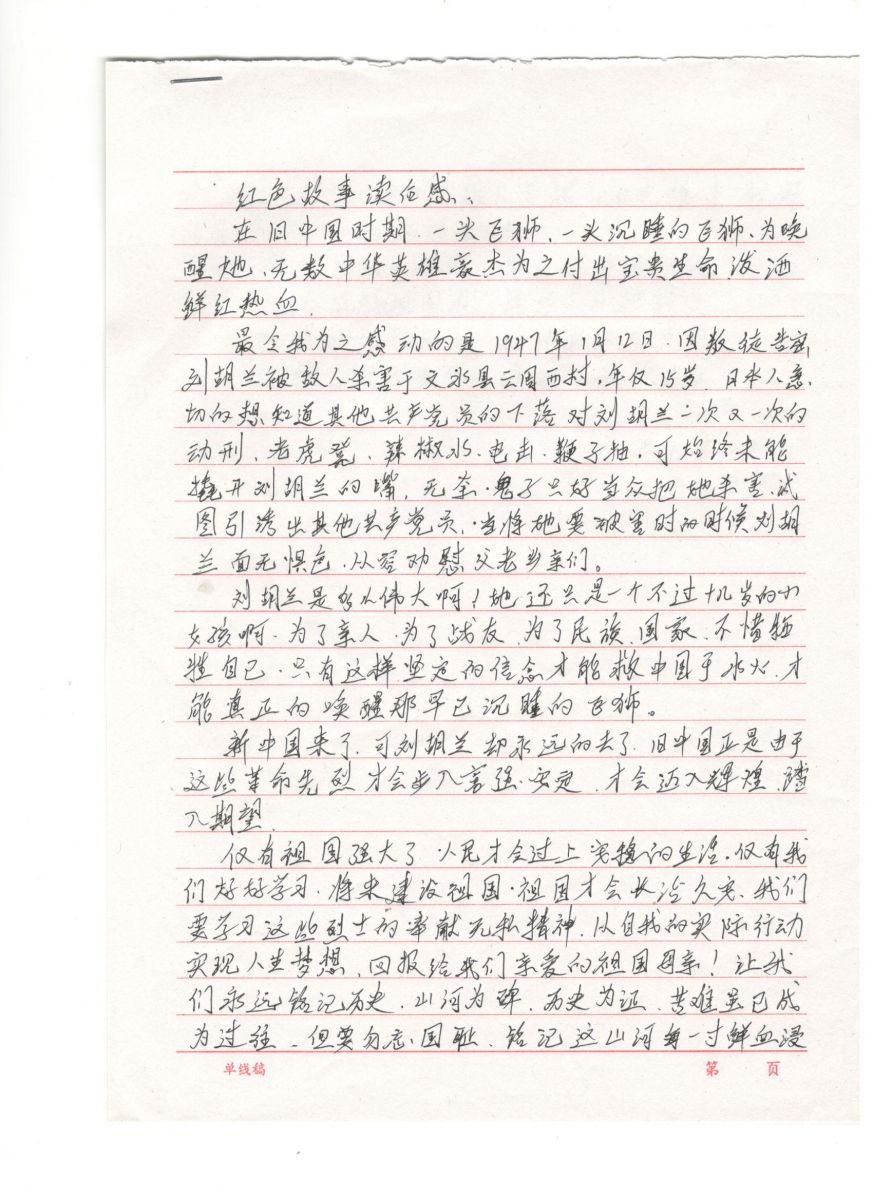 红色故事读后感、
在旧中国时期.一头飞狮、一头沉睡的飞狮、为唤
醒她、无数中华英雄豪杰为之付出宝贵生命.泼洒
鲜红热血.
最令我为之感动的是1947年1月12日.因叛徒告密,
刘胡兰被敌人杀害于文水县云周西村,年仅15岁.日本人急
切的想知道其他共产党员的下落对刘胡兰一次又一次的
动刑、老虎凳、辣椒水、电击、鞭子抽,可始终未能
撬开刘胡兰的嘴,无奈.鬼子只好当众把她杀害.试
图引诱出其他共产党员,当将她要被害时的时候刘胡
兰面无惧色.从容劝慰父老乡亲们。
刘胡兰是多么伟大啊!她还只是一个不过十几岁的小
女孩啊.为了亲人.为了战友.为了民族.国家.不惜牺
牲自己.只有这样坚定的信念才能救中国于水火.才
能真正的唤醒那早已沉睡的飞狮。
新中国来了.可刘胡兰却永远的去了.旧中国正是由于
这些革命先烈才会步入富强.安定.才会迈入辉煌.踏
入期望.
仅有祖国强大了人民才会过上安稳的生活.仅有我
们好好学习.将来建设祖国.祖国才会长治久安.我们
要学习这些烈士的奉献无私精神.从自我的实际行动
实现人生梦想.回报给我们亲爱的祖国母亲!让我
们永远铭记历史.山河为碑.历史为证.苦难虽已成
为过往.但要勿忘.国耻.铭记这山河每一寸鲜血浸
单线稿
第 页